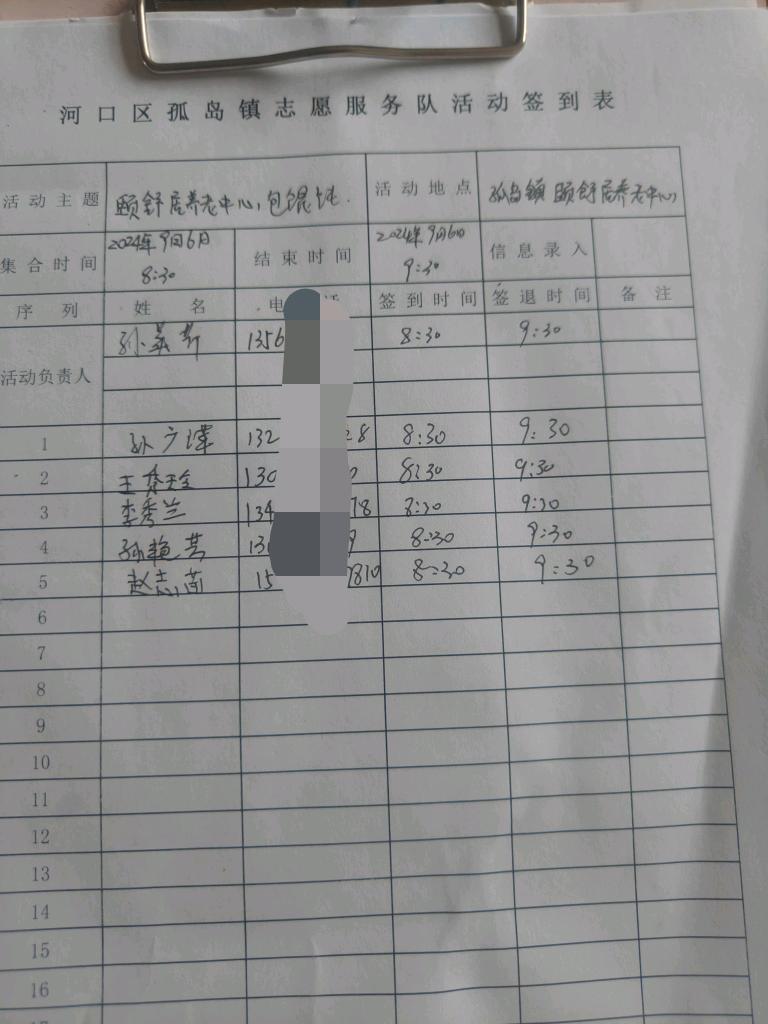 河口区孤岛镇志愿服务队活动签到表
活动主题 颐舒居养老中心,包馄饨. 活动地点 孤岛镇颐舒居养老中心
集合时间 2024年9月6日 8:30 结束时间 2024年9月6日 9:30 信息录入
序列 姓名 电话 签到时间 签退时间 备注
活动负责人 孙 1356 8:30 9:30
1 孙广 132 28 8:30 9:30
2 王 130 8:30 9:30
3 李秀兰 134 78 8:30 9:30
4 孙艳 13 9 8:30 9:30
5 赵志 15 7810 8:30 9:30
6
7
8
9
10
11
12
13
14
15
16